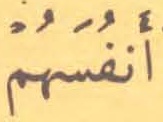 أَنفُسُهُمْ